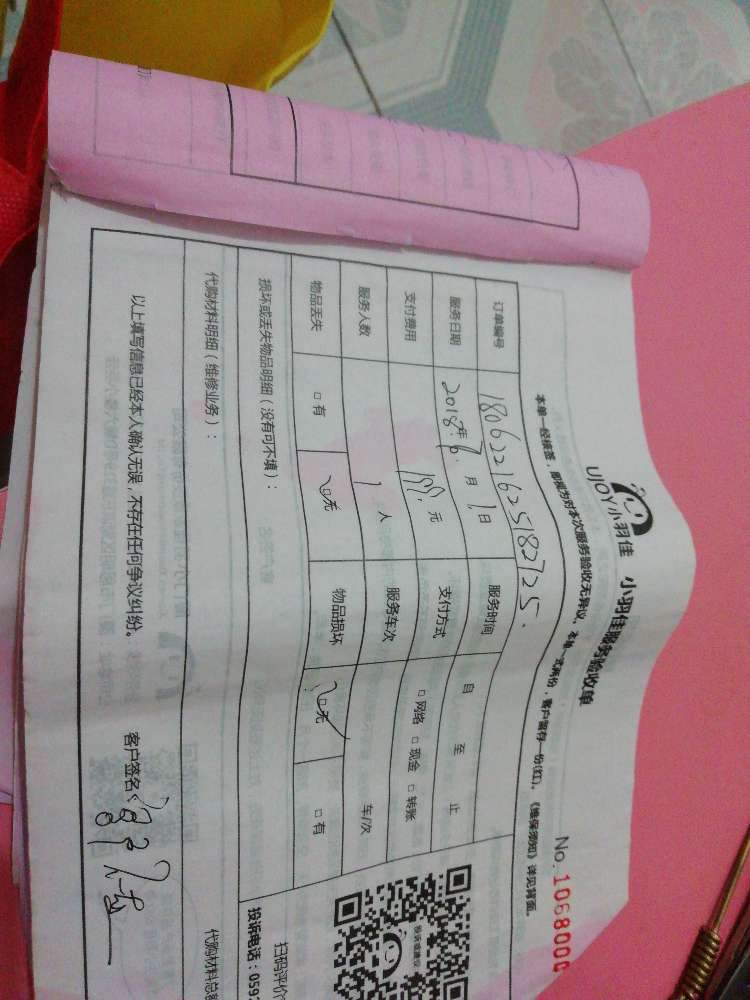 UJOY小羽佳 小羽佳服务验收单
No. 1068000
本单一经接签，即视为对本次服务验收无异议。本单一式两份，客户留存一份(红)。《维保须知》详见背面。
订单编号 1806221625182725.
服务日期 2018年7月1日 服务时间 自 至 止
支付费用 元 支付方式 □网络 □现金 □转账
服务人数 1人 服务车次 车/次
物品丢失 □有 □无 物品损坏 □无 □有
损坏或丢失物品明细（没有可不填）：
扫码评价
投诉电话：059
投诉或建议
代购材料明细（维修业务）：
代购材料总
以上填写信息已经本人确认无误，不存在任何争议纠纷。 客户签名：